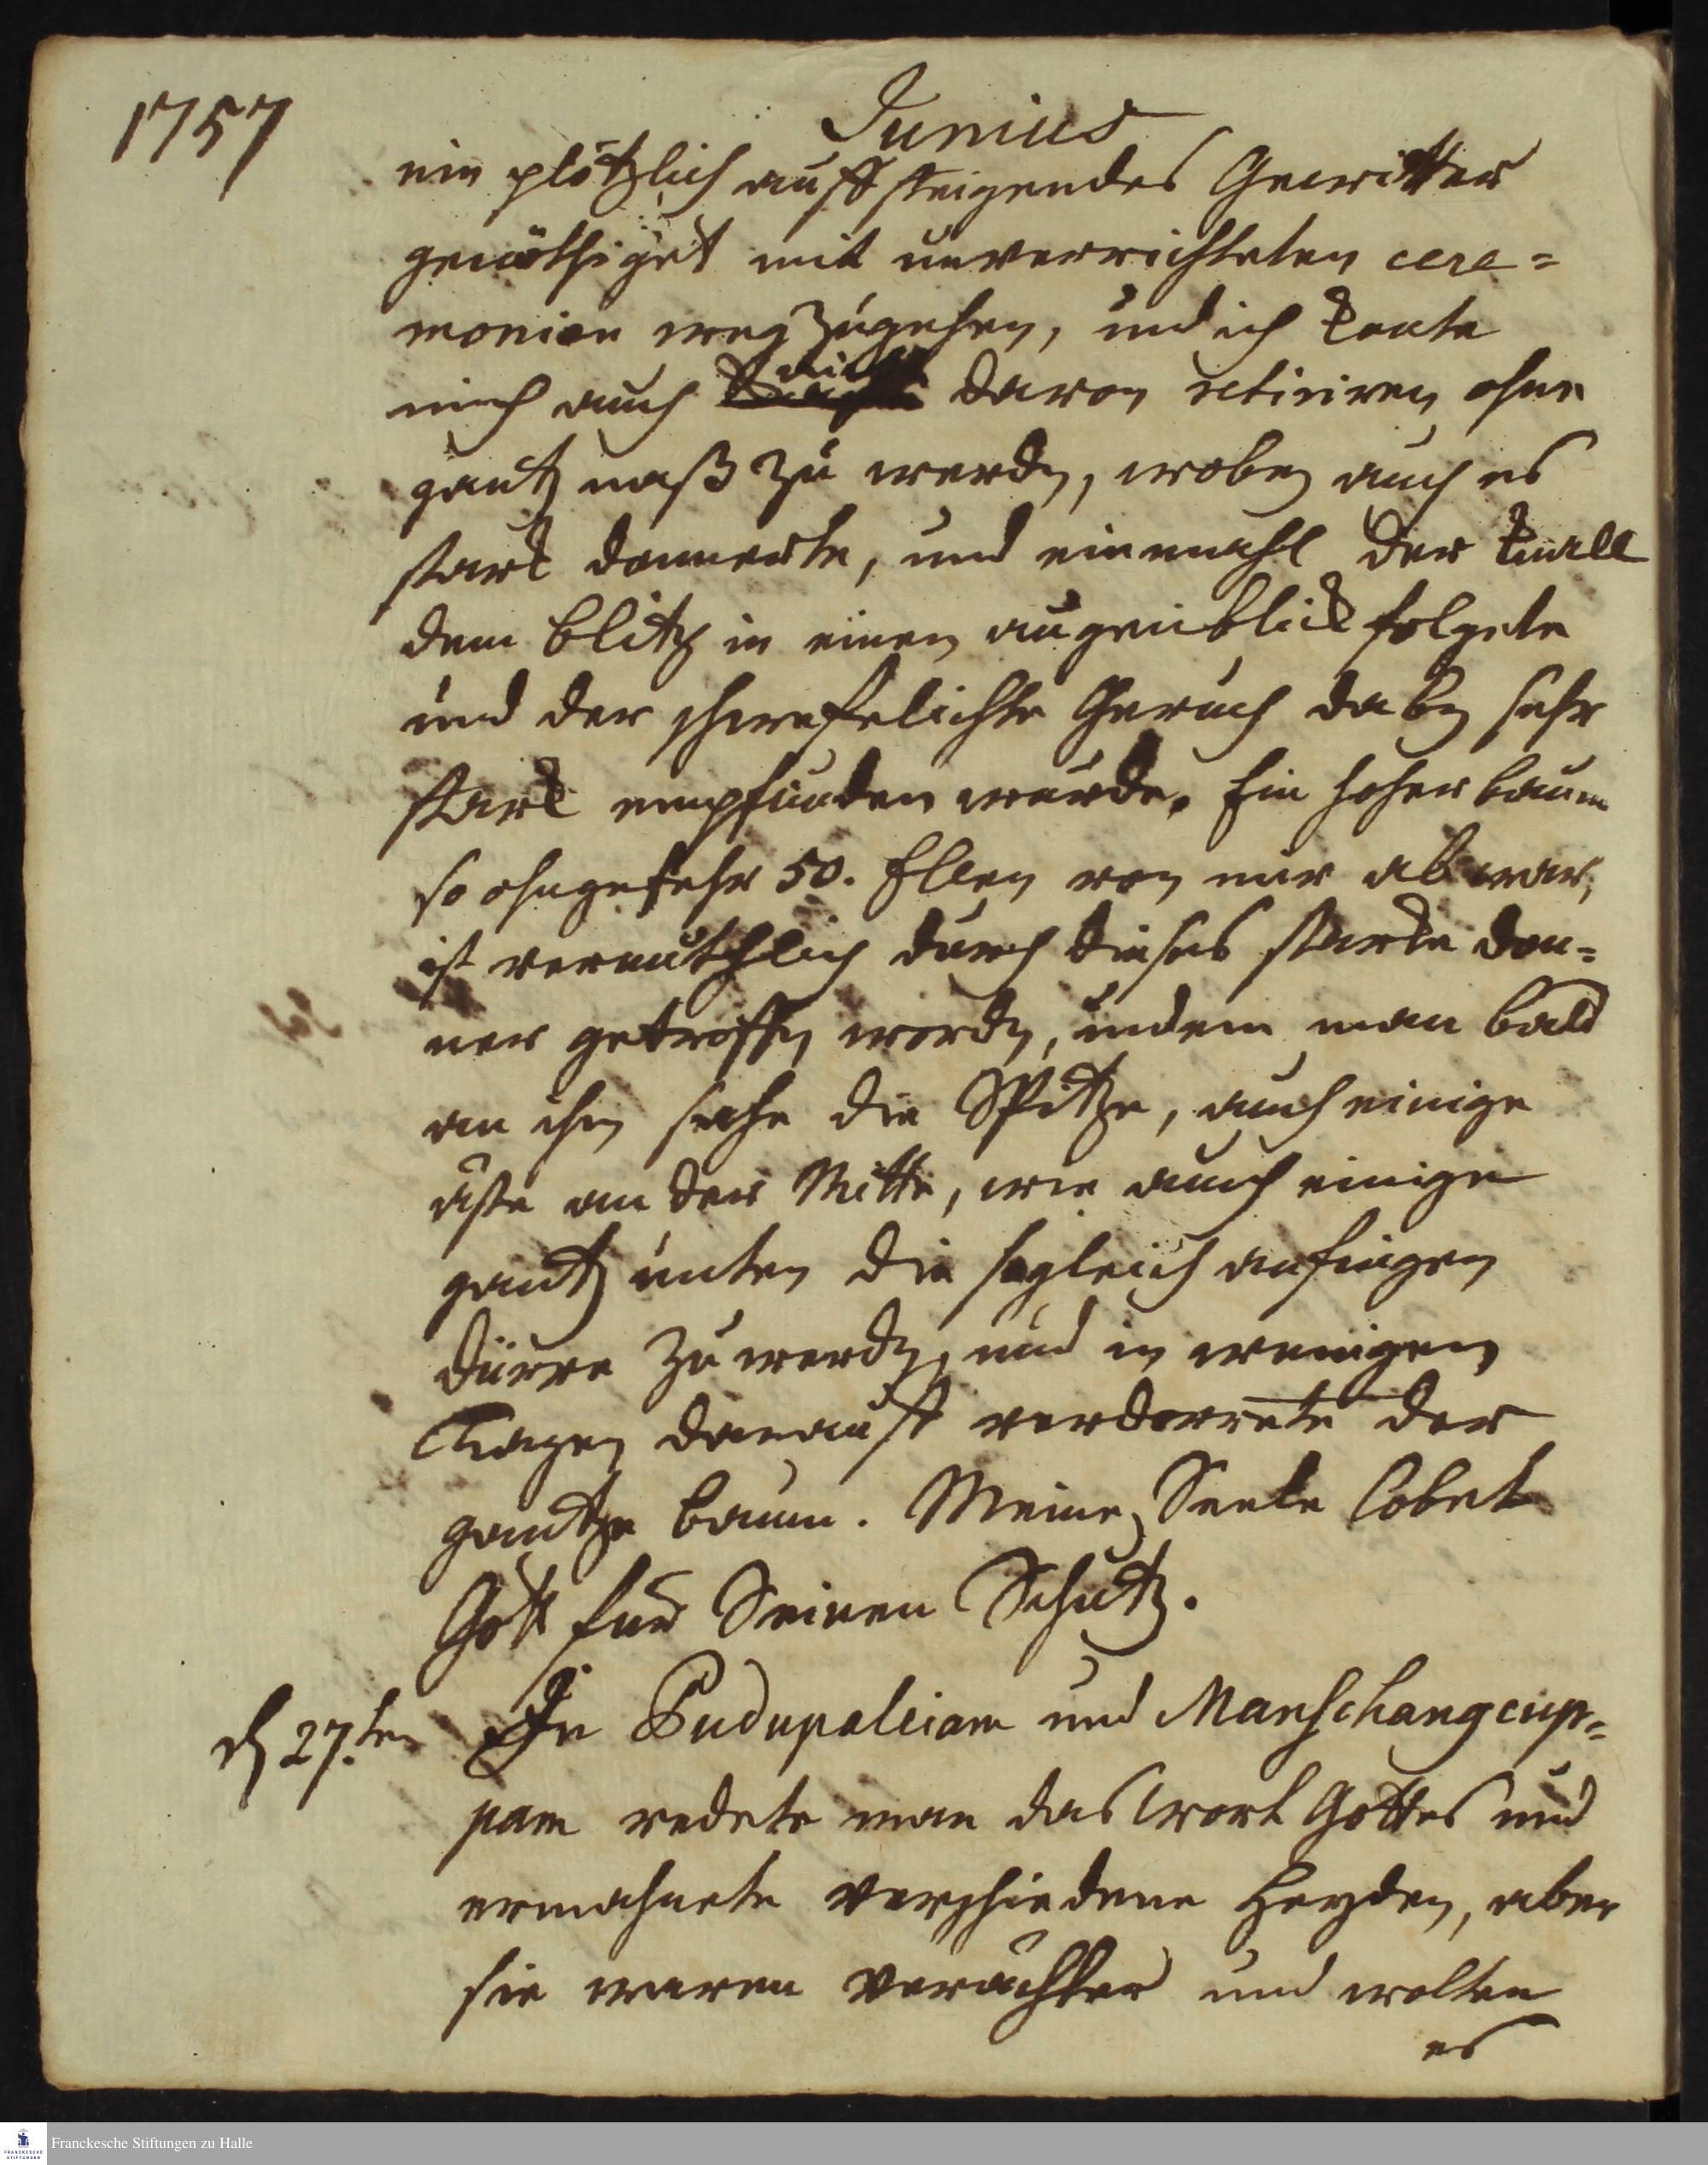 1757
Junius
ein plötzlich auffsteigendes Gewitter
genöthiget mit unverrichteten cere-
monien wegzugehen, und ich konte
mich auch nicht davon retiriren ohne
gantz naß zu werdn, wobey auch es
starck donnerte, und einmahl der knall
dem blitz in einen augenblick folgete
und der schwefelichte Geruch dabey sehr
starck empfunden wurde. Ein hoher baum
so ohngefehr 50. Ellen von mir ab war,
ist vermuthlich durch dieses starcke don-
ner getroffn wordn, indem man bald
an ihm sahe die Spitze, auch einige
äste an der Mitte, wie auch einige
gantz unten die sogleich anfingen
dürre zu werdn, und in wenigen
Tagen darauff verdorrete der
gantze baum. Meine Seele lobet
Gott für Seinen Schutz.
dn 27.ten In Pudupaleiam und Manschangcup-
pam redete man das Wort Gottes und
ermahnete verschiedene Heyden, aber
sie waren verächter und wolten
es
Franckesche Stiftungen zu Halle